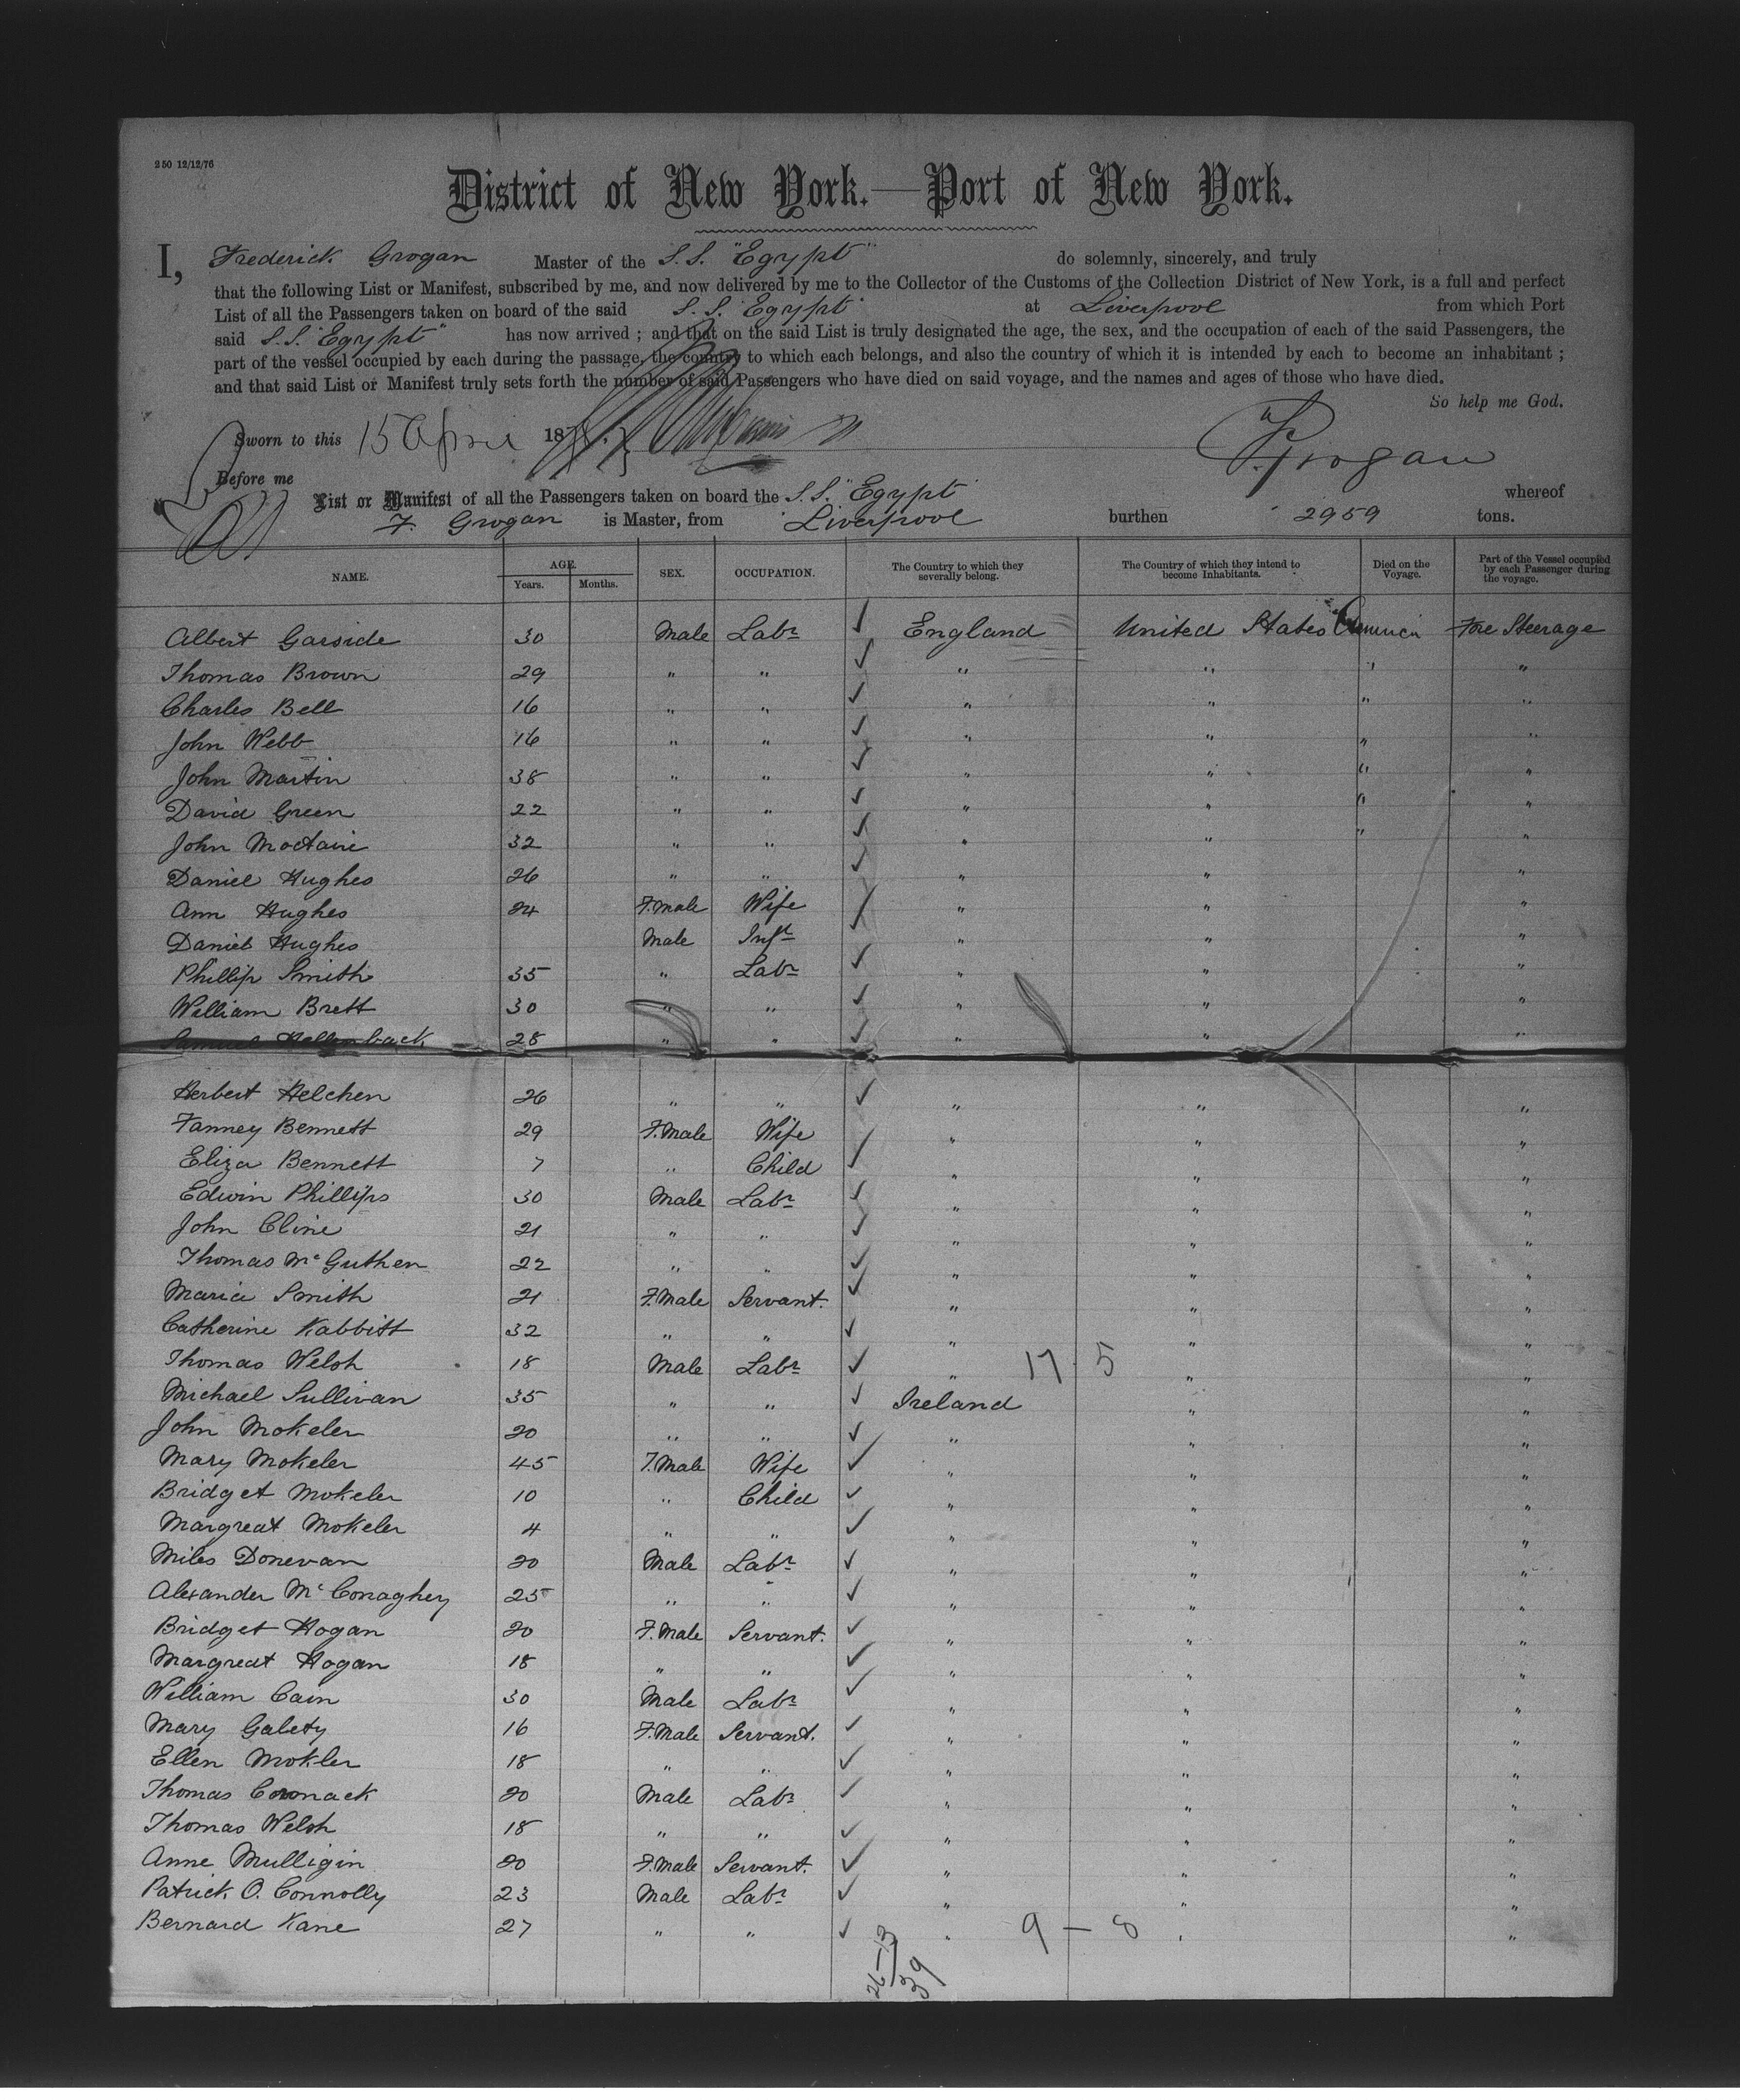 250 12/12/76
District of New York.—Port of New York.
I, Frederick Grogan Master of the S.S. "Egypt" do solemnly, sincerely, and truly
that the following List or Manifest, subscribed by me, and now delivered by me to the Collector of the Customs of the Collection District of New York, is a full and perfect
List of all the Passengers taken on board of the said S.S. Egypt at Liverpool from which Port
said S.S. "Egypt" has now arrived ; and that on the said List is truly designated the age, the sex, and the occupation of each of the said Passengers, the
part of the vessel occupied by each during the passage, the country to which each belongs, and also the country of which it is intended by each to become an inhabitant ;
and that said List or Manifest truly sets forth the number of said Passengers who have died on said voyage, and the names and ages of those who have died.
So help me God.
Sworn to this 15 April 187
F. Grogan
Before me
List or Manifest of all the Passengers taken on board the S.S. "Egypt" whereof
F. Grogan is Master, from Liverpool burthen 2959 tons.
NAME. AGE. Years. Months. SEX. OCCUPATION. The Country to which they severally belong. The Country of which they intend to become Inhabitants. Died on the Voyage. Part of the Vessel occupied by each Passenger during the voyage.
Albert Garside 30 Male Labr ✓ England United States America Fore Steerage
Thomas Brown 29 " " ✓ " " " "
Charles Bell 16 " " ✓ " " " "
John Webb 16 " " ✓ " " " "
John Martin 38 " " ✓ " " " "
David Green 22 " " ✓ " " " "
John 32 " " ✓ " " " "
Daniel Hughes 26 " " ✓ " " "
Ann Hughes 24 F.Male Wife ✓ " " "
Daniel Hughes Male Inft " " "
Phillip Smith 35 " Labr ✓ " " "
William Brett 30 " " ✓ " " "
Samuel Hellenback 28 " " ✓ " " "
Herbert Helchen 26 " " ✓ " " "
Fanney Bennett 29 F.Male Wife ✓ " " "
Eliza Bennett 7 " Child " " "
Edwin Phillips 30 Male Labr ✓ " " "
John Cline 21 " " ✓ " " "
Thomas McGuthen 22 " " ✓ " " "
Maria Smith 21 F.Male Servant. ✓ " " "
Catherine Kabbitt 32 " " ✓ " " "
Thomas Welsh 18 Male Labr ✓ " 17 5 " "
Michael Sullivan 35 " " ✓ Ireland " "
John Mokeler 20 " " ✓ " " "
Mary Mokeler 45 F.Male Wife ✓ " " "
Bridget Mokeler 10 " Child ✓ " " "
Margreat Mokeler 4 " " ✓ " " "
Miles Donevan 20 Male Labr ✓ " " "
Alexander McConaghey 25 " " ✓ " " "
Bridget Hogan 20 F.Male Servant. ✓ " " "
Margreat Hogan 18 " " ✓ " " "
William Cain 30 Male Labr ✓ " " "
Mary Galety 16 F.Male Servant. ✓ " " "
Ellen Mokler 18 " " ✓ " " "
Thomas 20 Male Labr ✓ " " "
Thomas Welsh 18 " " ✓ " " "
Anne Mulligin 20 F.Male Servant. ✓ " " "
Patrick O. Connolly 23 Male Labr ✓ " " "
Bernard Kane 27 " " ✓ " 9 — 8 " "
26—13
39